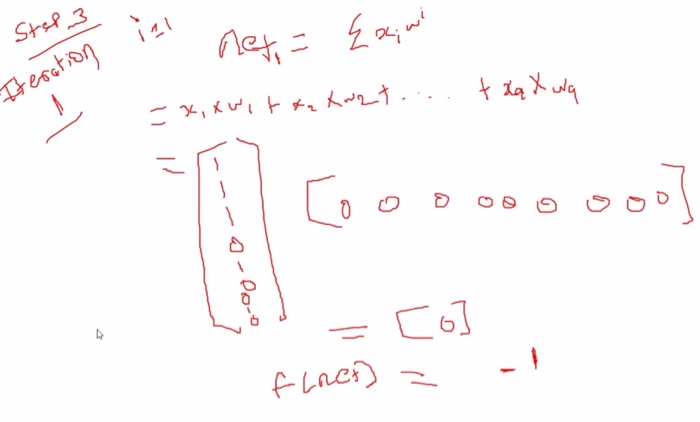 Step 3
Iteration
1
i=1
net₁ = Σ xᵢ wᵢ
= x₁ x w₁ + x₂ x w₂ + .... + x₉ x w₉
=
[
1
1
1
1
0
1
0
0
1
0
]
[ 0 0 0 0 0 0 0 0 0 ]
= [0]
f(net) = -1